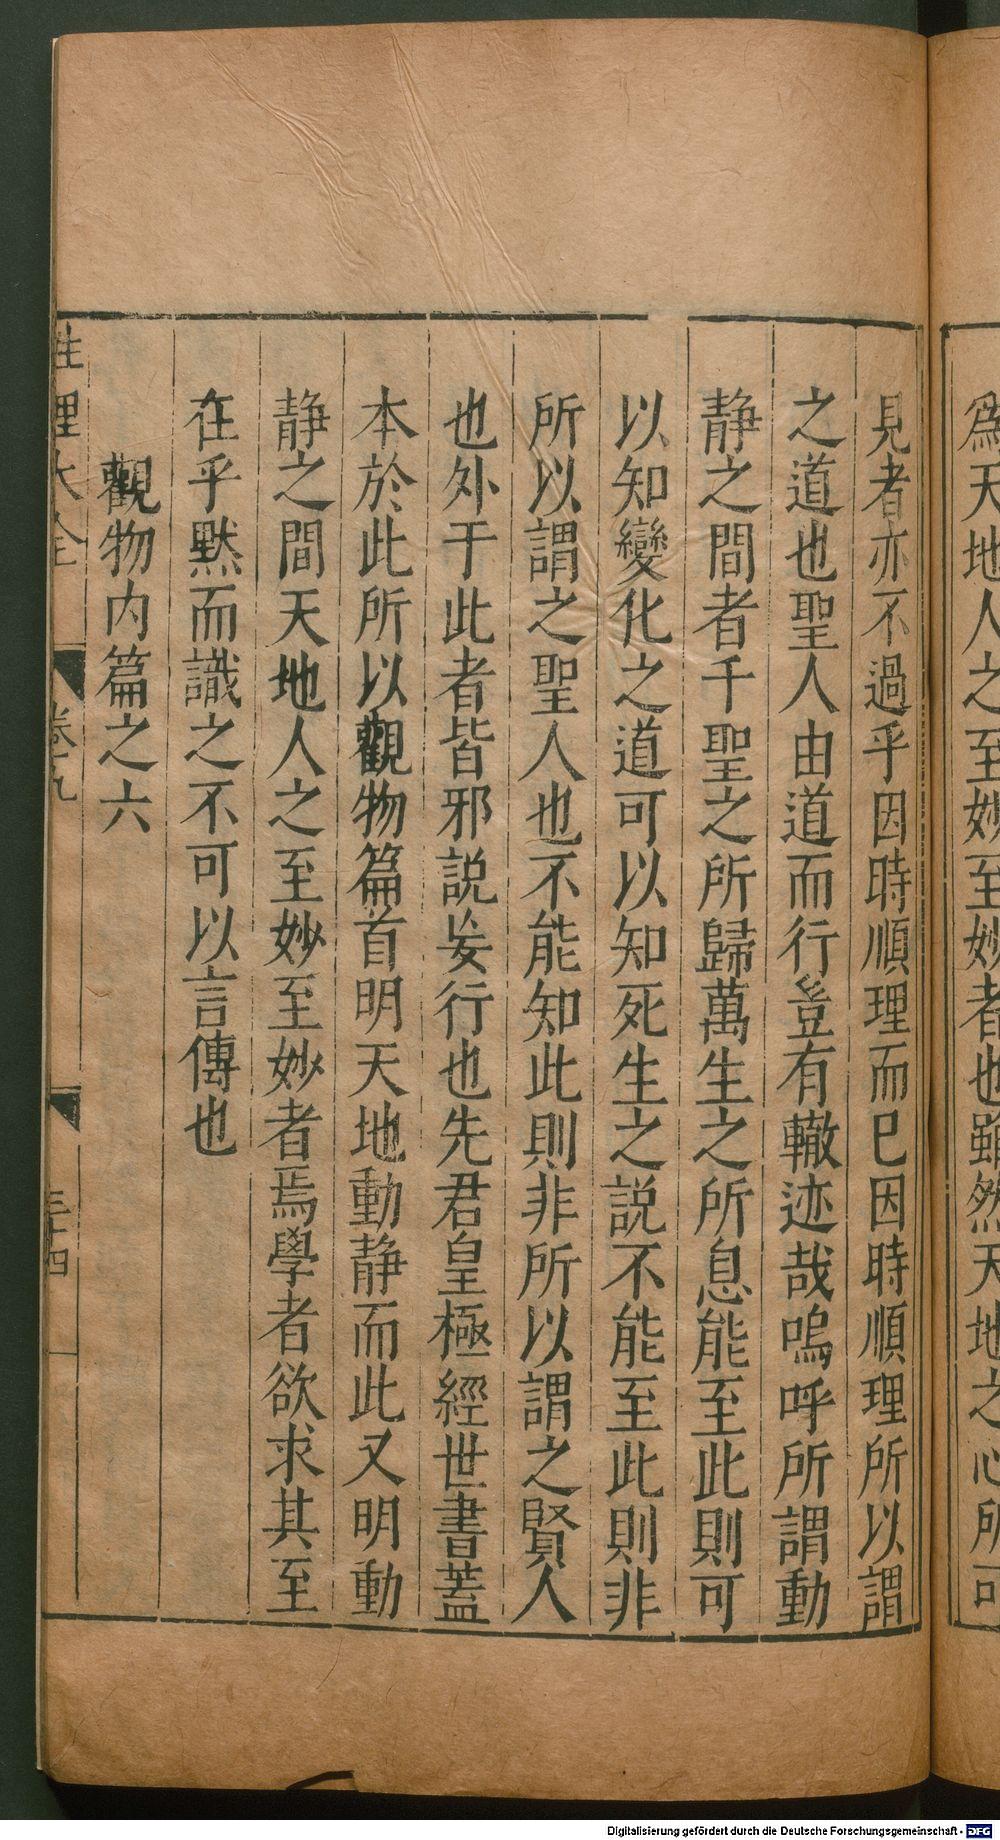 爲天地人之至妙至妙者也雖然天地之心所可
見者亦不過乎因時順理而已因時順理所以謂
之道也聖人由道而行豈有轍迹哉嗚呼所謂動
静之間者千聖之所歸萬生之所息能至此則可
以知變化之道可以知死生之説不能至此則非
所以謂之聖人也不能知此則非所以謂之賢人
也外于此者皆邪説妄行也先君皇極經世書蓋
本於此所以觀物篇首明天地動静而此又明動
静之間天地人之至妙至妙者焉學者欲求其至
在乎黙而識之不可以言傳也
觀物内篇之六
性理大全 卷九 三十四
Digitalisierung gefördert durch die Deutsche Forschungsgemeinschaft - DFG